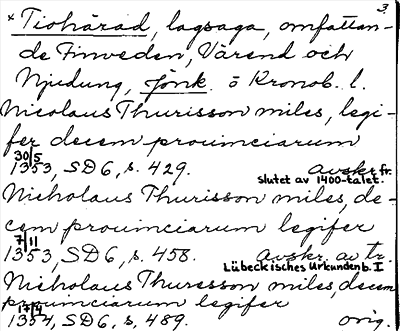 3.
* Tiohärad, lagsaga, omfattan-
de Finveden, Värend och
Njudung, Jönk. o Kronob. l.
Nicolaus Thurisson miles, legi-
fer decem prouinciarum
30/5
1353, SD 6, s. 429. avskr. fr.
slutet av 1400-talet.
Nicholaus Thurisson miles, de-
cem prouinciarum legifer
7/11
1353, SD 6, s. 458. Avskr. av tr.
Lübeckisches Urkundenb. I
Nicholaus Thuresson miles, decem
prouinciarum legifer
17/4
1354, SD 6, s. 489. orig.